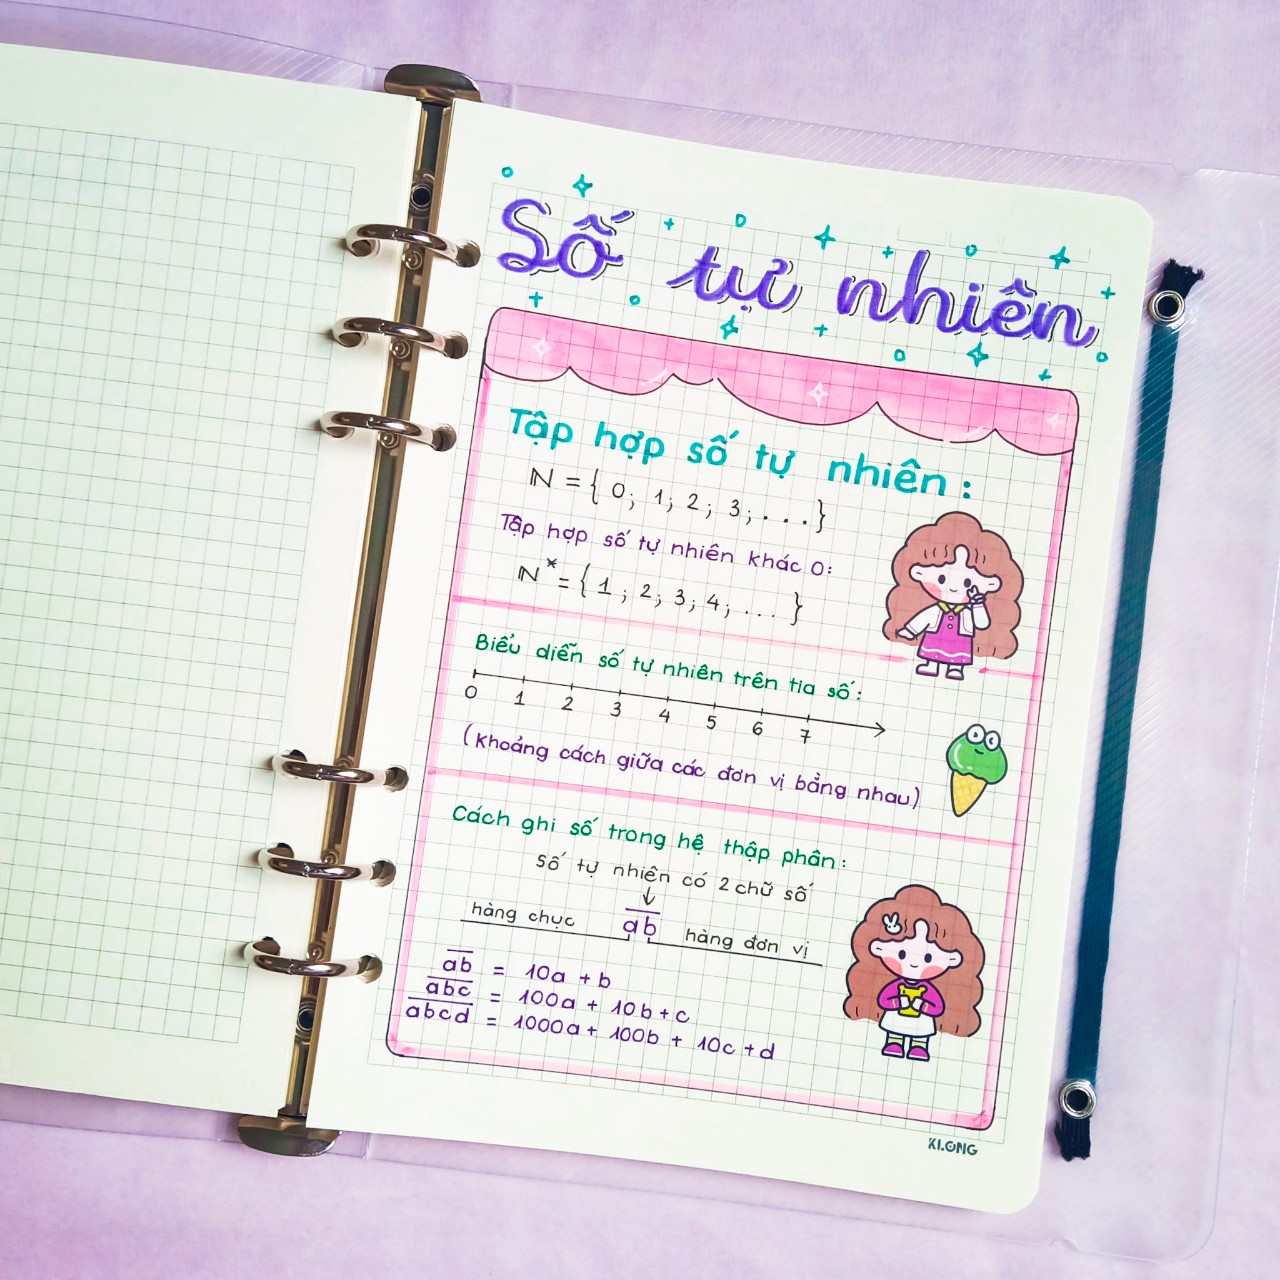 Số tự nhiên
Tập hợp số tự nhiên:
ℕ = { 0; 1; 2; 3; . . . }
Tập hợp số tự nhiên khác 0:
ℕ* = { 1; 2; 3; 4; ... }
Biểu diễn số tự nhiên trên tia số:
0 1 2 3 4 5 6 7
(Khoảng cách giữa các đơn vị bằng nhau)
Cách ghi số trong hệ thập phân:
Số tự nhiên có 2 chữ số
hàng chục a̅b̅ hàng đơn vị
a̅b̅ = 10a + b
a̅b̅c̅ = 100a + 10b + c
a̅b̅c̅d̅ = 1000a + 100b + 10c + d
KLONG